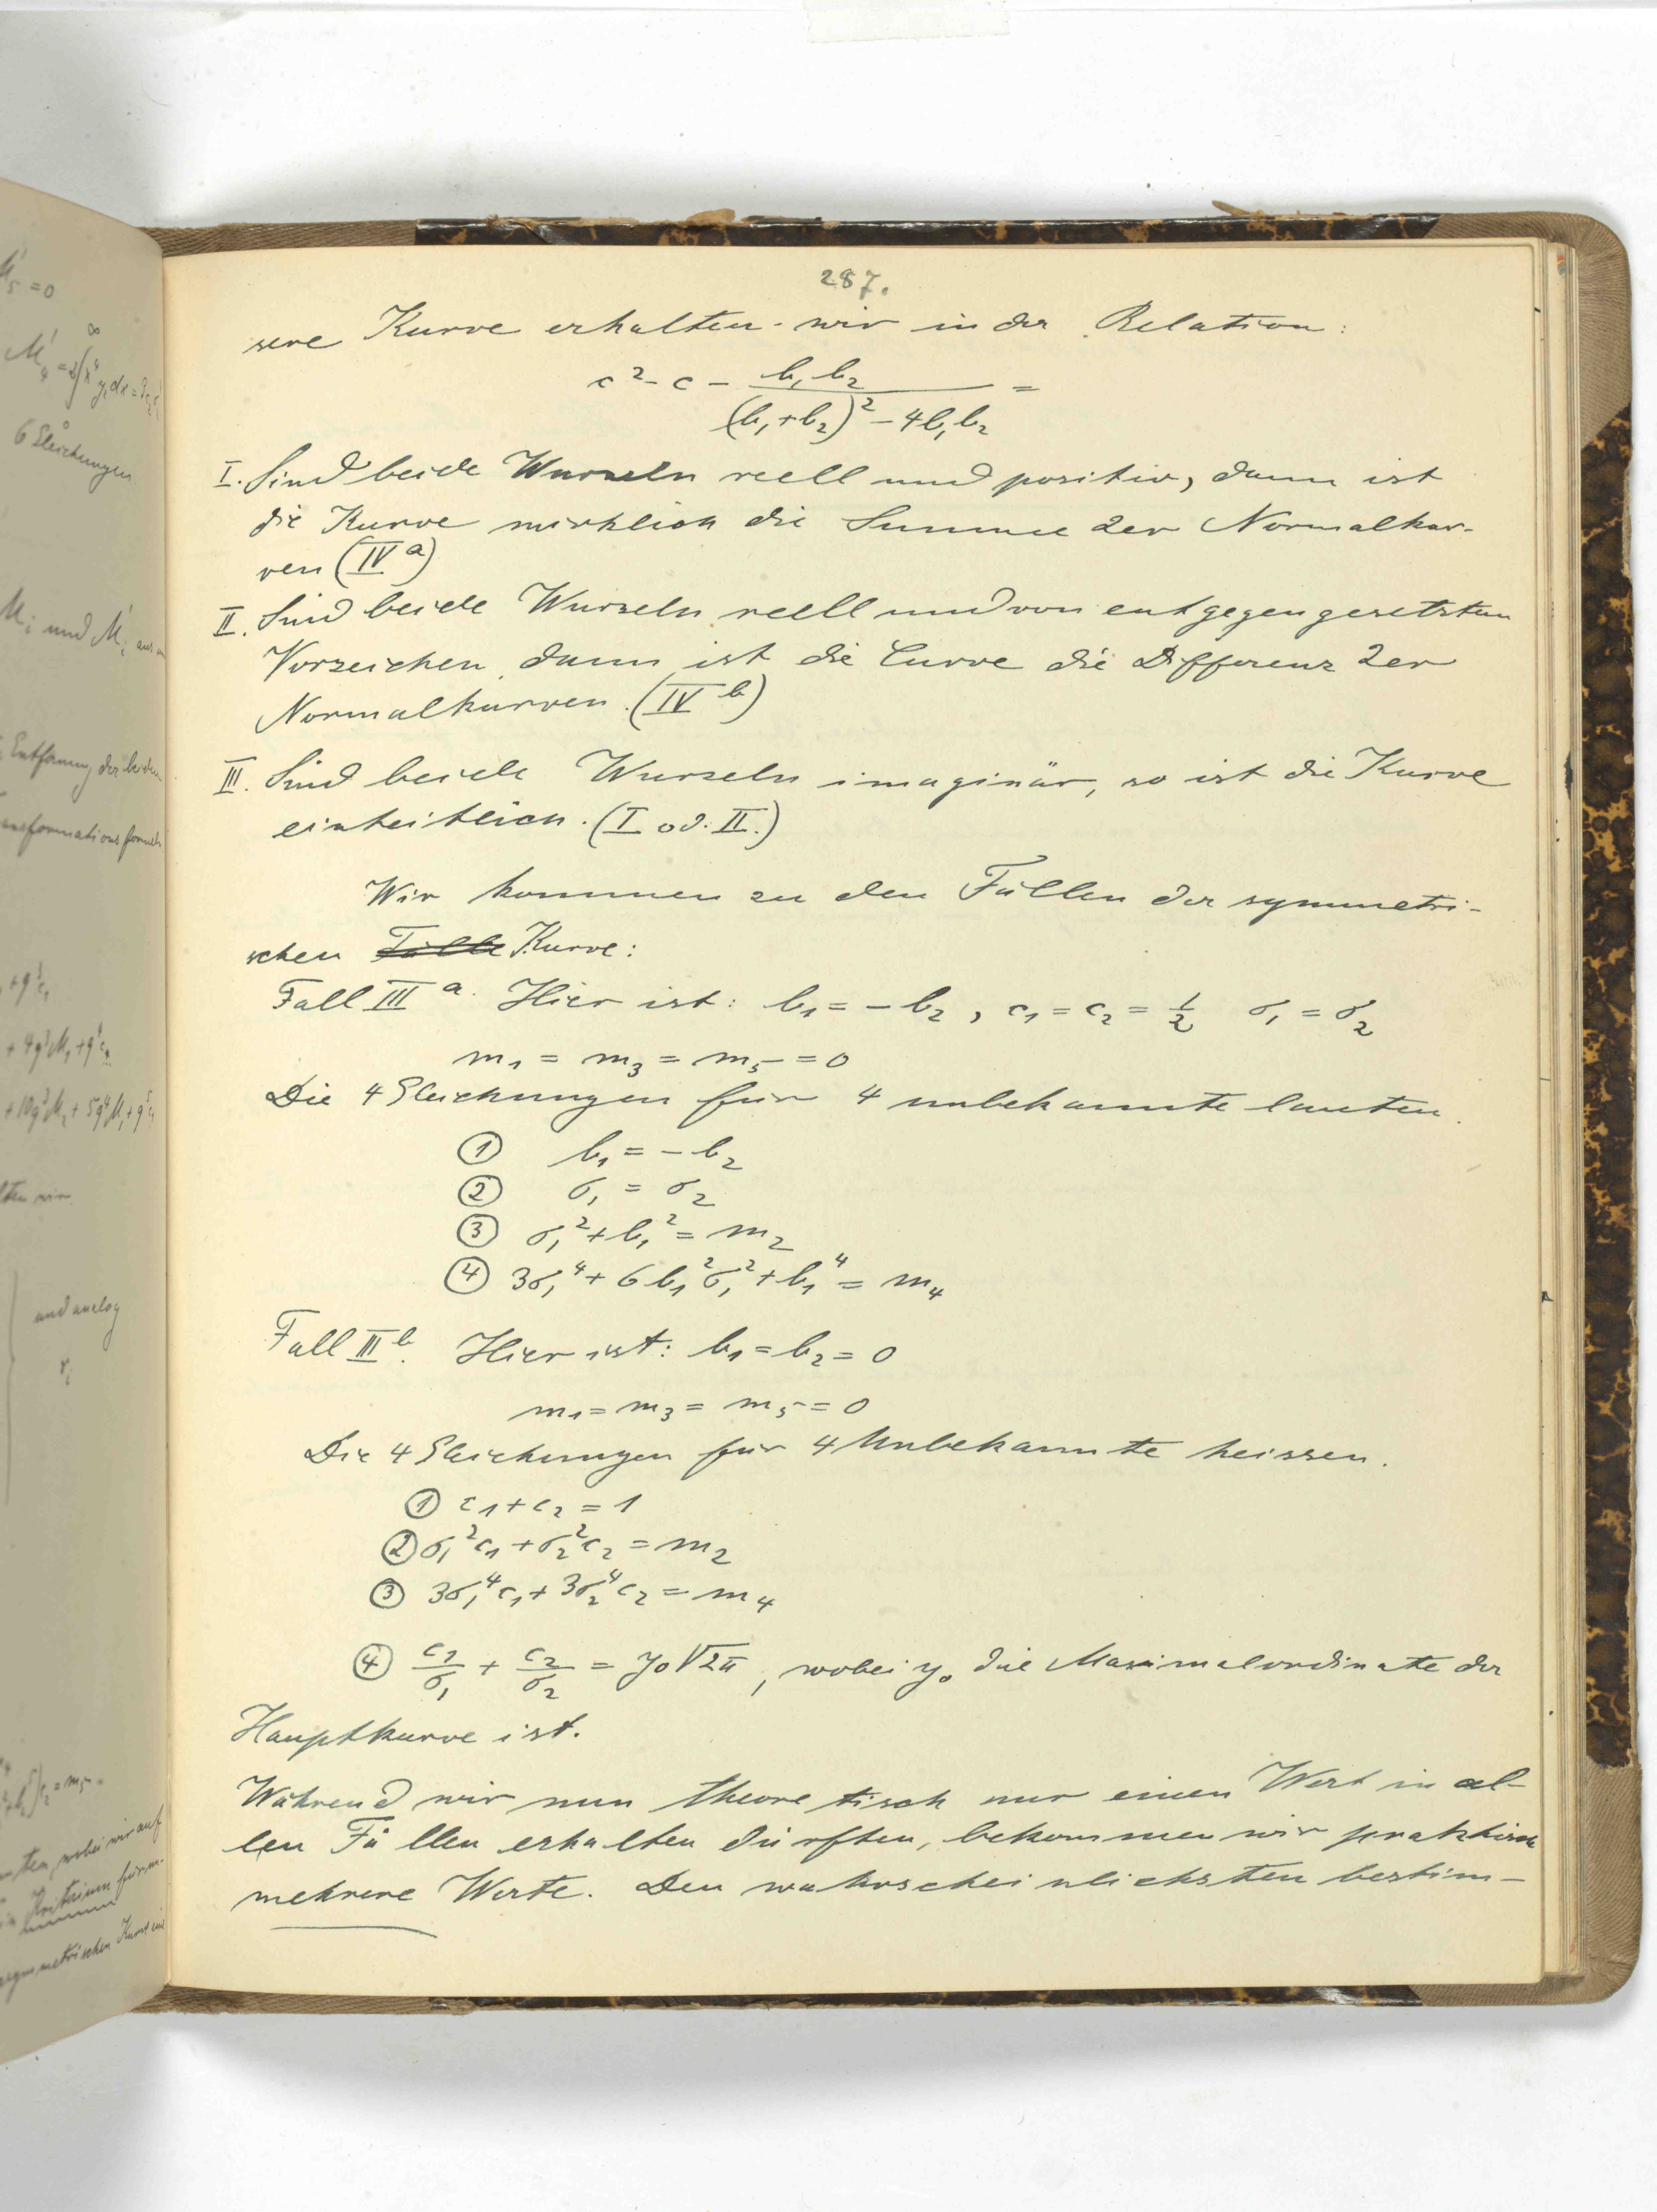 287.
sere Kurve erhalten wir in der Relation:
c² - c - b₁b₂ / ((b₁+b₂)² - 4b₁b₂) =
I. Sind beide Wurzeln reell und positiv, dann ist
die Kurve wirklich die Summe 2er Normalkur-
ven (IVᵃ)
II. Sind beide Wurzeln reell und von entgegengesetzten
Vorzeichen, dann ist die Curve die Differenz 2er
Normalkurven. (IVᵇ)
III. Sind beide Wurzeln imaginär, so ist die Kurve
einheitlich. (I od. II.)
Wir kommen zu den Fällen der symmetri-
schen Fälle Kurve:
Fall IIIᵃ. Hier ist: b₁ = -b₂, c₁ = c₂ = 1/2 σ₁ = σ₂
m₁ = m₃ = m₅ = 0
Die 4 Gleichungen für 4 unbekannte lauten.
① b₁ = -b₂
② σ₁ = σ₂
③ σ₁² + b₁² = m₂
④ 3σ₁⁴ + 6b₁²σ₁² + b₁⁴ = m₄
Fall IIIᵇ. Hier ist: b₁ = b₂ = 0
m₁ = m₃ = m₅ = 0
Die 4 Gleichungen für 4 Unbekannte heissen.
① c₁ + c₂ = 1
② σ₁²c₁ + σ₂²c₂ = m₂
③ 3σ₁⁴c₁ + 3σ₂⁴c₂ = m₄
④ c₁/σ₁ + c₂/σ₂ = y₀√2π, wobei y₀ die Maximalordinate der
Hauptkurve ist.
Während wir nun theoretisch nur einen Wert in al-
len Fällen erhalten dürften, bekommen wir praktisch
mehrere Werte. Den wahrscheinlichsten bestim-
M'₅ = 0
6 Gleichungen
Mᵢ und M'ᵢ aus
Entfernung der beiden
ansformationsformeln
+ 4g³M₁ + g⁴c₁
+ 10g³M₂ + 5g⁴M₁ + g⁵c₁
lten wir
und analog
wobei wir auf
Kriterium für m.
symmetrischen Kurve